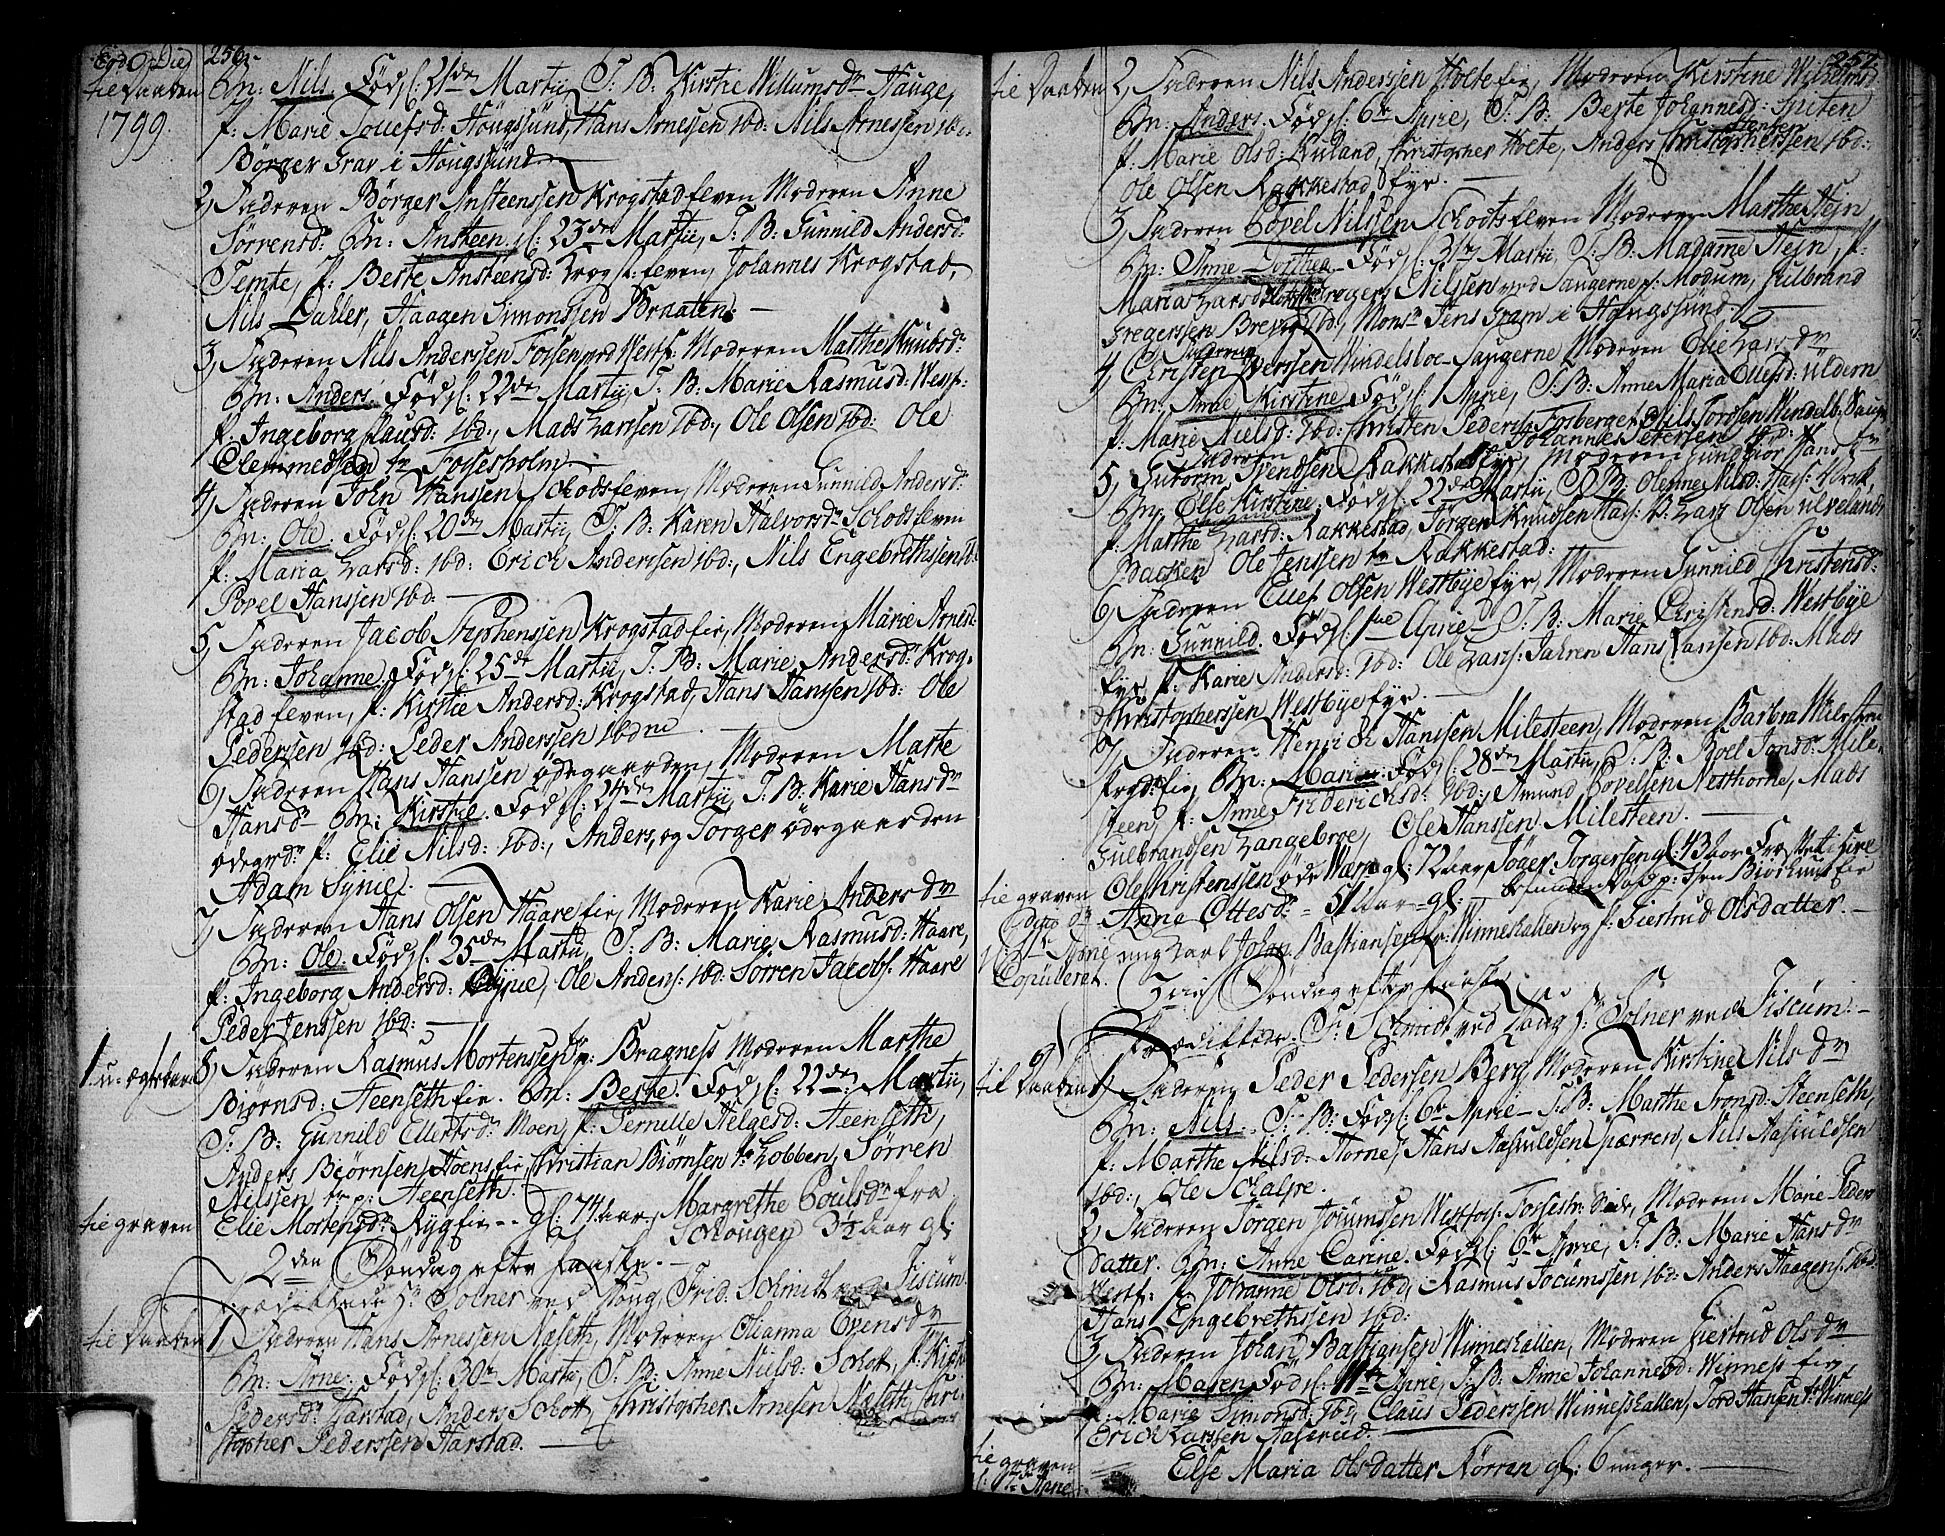 256.
til Daaben Bn: Nils. Fødsl: 21de Martii, T: B: Kirstie Willumsdr Hauge,
1799. f: Marie Touefsd: Hougsund, Hans Arnesen ibd: Nils Arnessen ibd:
Børger Grav i Hougsund
2, Faderen Børger Ansteenssen Krogstadeleven Moderen Anne
Sørrensdr Bn: Ansteen. f: 23de Martii, T: B: Gunnild Andersd:
Temte, f: Berte Ansteensd: Krogst:eleven, Johannes Krogstad,
Nils Dahler, Haagen Simonssen Bernaten.
3, Faderen Nils Anderssen Fossen ved Westf: Moderen Marthe Knudsdr
Bn: Anders. Fødsl: 22de Martii, T: B: Marie Rasmusd: Westf:
f: Ingeborg Paulsd: ibd:, Mads Larssen ibd:, Ole Olsen ibd: Ole
Clemmedsen fr Fossesholm.
4, Faderen John Hanssen Schodseleven, Moderen Gunnild Andersd:
Bn: Ole. Fødsl: 20de Martii, T: B: Karen Halvorsdr Schodseleven
f: Maria Larsd: ibd: Erich Anderssen ibd:, Nils Engebrethssen ibd:
Povel Hanssen ibd:
5, Faderen Jacob Stephenssen Krogstad eie, Moderen Marie Arnesd:
Bn: Johanne. Fødsl: 25de Martii, T: B: Marie Andersdr Krog-
stad eleven, f: Kirstie Andersd: Krogstad, Hans Hanssen ibd: Ole
Pederssen ibd: Peder Anderssen ibdm
6, Faderen Hans Hanssen Ødegaarden, Moderen Marte
Hansdr Bn: Kirstie. Fødsl: 24de Martii, T: B: Karie Hansdr
Ødegrdn f: Elie Nilsd: ibd:, Anders, og Torger Ødegaarden
Adam Synie.
7, Faderen Hans Olsen Haare eie, Moderen Karie Andersdr
Bn: Ole. Fødsl: 25de Martii, T: B: Marie Rasmusd: Haare,
f: Ingeborg Andersd: Synie, Ole Anders: ibd: Sørren Jacobs: Haare
Peder Jenssen ibd:
1. u-ægte barn 8, Faderen Rasmus Mortenssen fr p: Bragness Moderen Marthe
Biørnsd: Steenseth eie. Bn: Berthe. Fødsl: 22de Martii,
T: B: Gunnild Ellertsdr Moen, f: Pernille Helgesd: Steenseth,
Anders Biørnsen, Hoens eie, Christian Biørnsen fr Lobben, Sørren
Nilssen fr p: Steenseth.
til graven Elie Mortensdr Ryg eie - gl: 74 aar, Margrethe Poulsdr fra
Schougen 3½ aar gl:
2den Søndag efter Paaske.
Prædikede Hr Solner ved Houg, Frid: Schmidt ved Fiscum.
til Daaben 1, Faderen Hans Arnessen Naseth, Moderen Olianna Evensdr
Bn: Arne. Fødsl: 30te Martii, T: B: Anne Nielsd: Schott, f: Kirstie
Pedersdr Harstad, Anders Schott, Christopher Arnesen Naseth, Chri-
stopher Pederssen Harstad.
257.
til Daaben 2, Faderen Nils Anderssen Holte eie, Moderen Kerstine Wilhelmsd:
Bn: Anders. Fødsl: 6te April, T: B: Berte Johannesd: Spiten
f: Marie Olsd: Ruland, Christopher Holte, Anders Christopherssen ibd:
Ole Olsen Rakkestad eye.
3, Faderen Povel Nilssen Schotseleven Moderen Marthe Stejn
Bn: Anne Dorthea. Fødsl: 31te Martii, T: B: Madame Stejn, f:
Maria Larsdotter Gregers Nilssen ved Saugerne p: Modum, Gulbrand
Gregerssen Brevig ibd:, Monsr Jens Gram i Hougsund.
4, Faderen Christen Iverssen Windelsboe-Saugerne Moderen Elie Larsdr
Bn: Anne Kirstine. Fødsl: 1 April, T: B: Anne Maria Ellefsd: Uldern
f: Marie Nielsd: ibd: Christen Peders: Fosberger, Nils Torssen Windelb: Saug
Johannes Petersen ibd:
5, Faderen Gutorm Svendsen Rakkestad eye, Moderen Gundbior Hansdr
Bn: Else Kirstine. Fødsl: 22de Martii, T: B: Olenne Nilsd:
f: Marthe Larsd: Rakkestad, Jørgen Knudsen Lars Olsen Ulvelands
Backen Ole Jenssen fr Rakkestad:
6, Faderen Ellef Olsen Westbye eye, Moderen Gunnild Christensd:
Bn: Gunnild. Fødsl: 1ste April - T: B: Marie Christensd: Westbye
eye f: Karie Andersd: ibd: Ole Lars: Jahren Hans Larssen ibd: Mads
Christopherssen Westbye eye.
7, Faderen Henrich Hanssen Milesteen, Moderen Barbra Milesteen
Fredr: eie, Bn: Maria. Fødsl: 28de Martii, T: B: Boel Jonsd: Mile-
steen, f: Anne Friderichsd: ibd:, Amund Povelsen Nesthorne, Mads
Gulbrandsen Langebroe, Ole Hanssen Milesteen.
til graven Ole Christenssen øde Wærp gl: 72 aar, Joger Jørgersen gl: 43 aar
Anne Ottesdr = 51 aar = gl:
April ung Karl Johan Bastiansen fr Winneshallen og f: Giertrud Olsdatter.
Copuleret.
3die Søndag efter Paaske
Prædikede Fr: Schmidt ved Houg Hr Solner ved Fiscum.
til Daaben 1, Faderen Peder Pedersen Berg Moderen Kirstine Nilsdr
Bn: Nils. T: B: Fødsl: 6te April - T: B: Marthe Tronsd: Steenseth,
f: Marthe Nilsd: Horne, Hans Aasuldsen Sparren, Nils Aasuldsen
ibd:, Ole Schalse.
2, Faderen Jørgen Jocumssen Westfos: Fossesh: Side, Moderen Marie Peders
datter. Bn: Anne Carine. Fødsl: 6te April, T: B: Marie Hansdr
Westf: f: Johanne Olsd: ibd:, Rasmus Jocumssen ibd: Anders Haagens: ibd:
Hans Engebrethssen ibd:
3, Faderen Johan Bastiansen Winneshallen, Moderen Giertrud Olsdr
Bn: Maren Fødsl: 11te April, T: B: Anne Johannesd: Winness eie,
f: Marie Simonsd: ibd:, Claus Pederssen Winneshallen, Tord Hansen fr Winness
Erich Larssen Aaserud.
til graven Else Maria Olsdatter Rørren gl: 6 uuger.